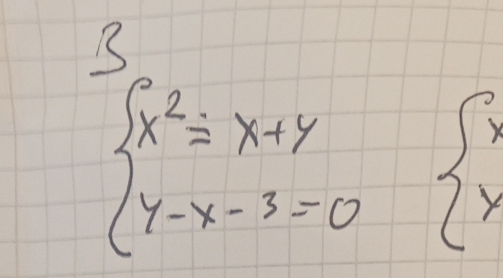 B
x² = x+y
y-x-3=0
x
y